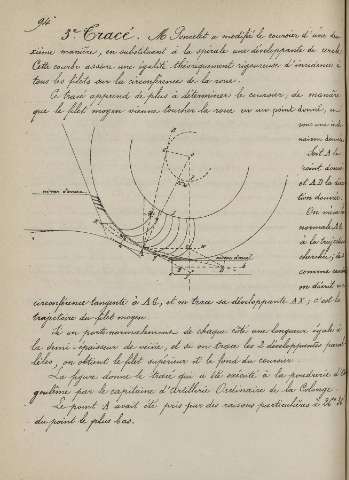 94
5º Tracé. M Poncelet a modifié le coursier d'une deu-
xième manière, en substituant à la spirale une développante de cercle
Cette courbe assure une égalité théoriquement rigoureuse d'incidence à
tous les filets sur la circonférence de la roue.
Ce tracé apprend de plus à déterminer le coursier, de manière
que le filet moyen vienne toucher la roue en un point donné,
Soit A le
point donné
et AB la direc
tion donnée.
On mène la
normale AC
à la trajectoire
cherchée,
comme
on décrit une
niveau d'amont
niveau d'aval
circonférence tangente à AC, et on trace sa développante AX; c'est la
trajectoire du filet moyen.
Si on porte normalement de chaque côté une longueur égale à
la demi-épaisseur de veine, et si on trace les 2 développantes paral
lèles, on obtient le filet supérieur et le fond du coursier
La figure donne le tracé qui a été exécuté à la poudrerie d'An
goulême par le capitaine d'Artillerie Ordinaire de la Colonge.
Le point A avait été pris pour des raisons particulières à
du point le plus bas.